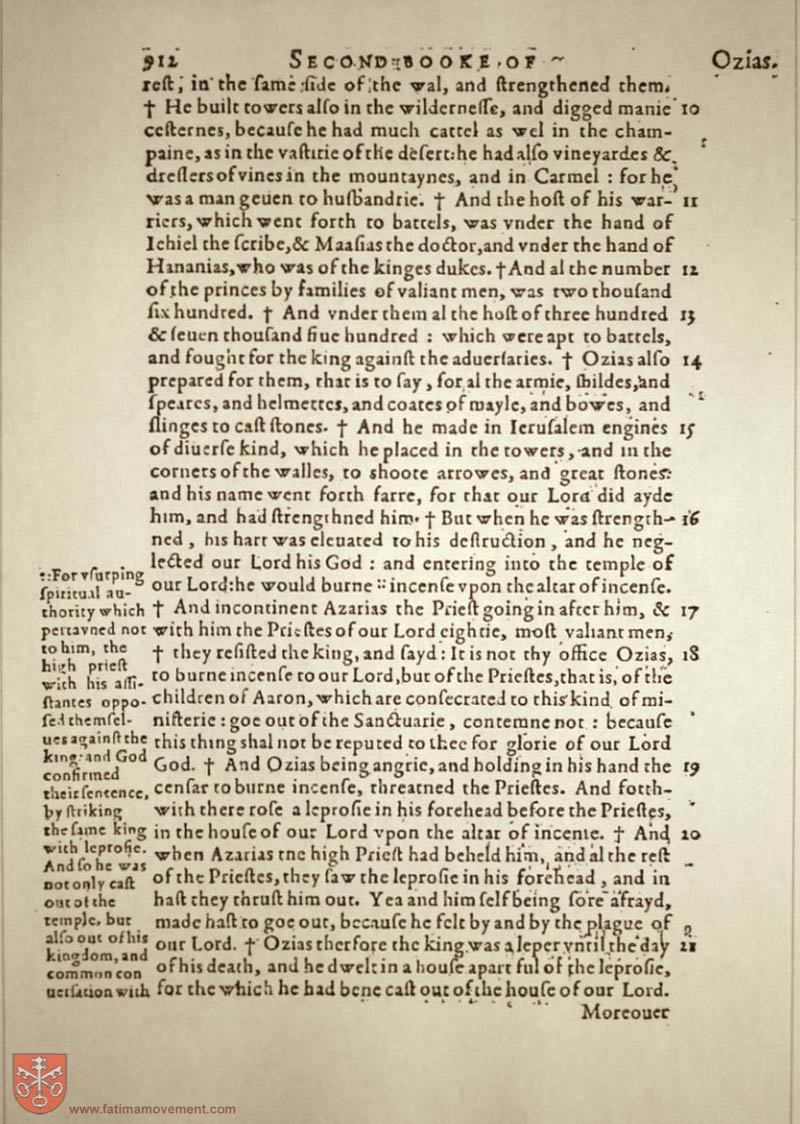 912 SECOND BOOKE OF Ozias.
reſt, in the ſame ſide of the wal, and ſtrengthened them.
† He built towers alſo in the wilderneſſe, and digged manie 10
ceſternes, becauſe he had much cattel as wel in the cham-
paine, as in the vaſtitie of the deſert: he had alſo vineyardes &
dreſſers of vines in the mountaynes, and in Carmel : for he
was a man geuen to huſbandrie. † And the hoſt of his war- 11
riers, which went forth to battels, was vnder the hand of
Iehiel the ſcribe, & Maaſias the doctor, and vnder the hand of
Hananias, who was of the kinges dukes. † And al the number 12
of the princes by families of valiant men, was two thouſand
ſix hundred. † And vnder them al the hoſt of three hundred 13
& ſeuen thouſand fiue hundred : which were apt to battels,
and fought for the king againſt the aduerſaries. † Ozias alſo 14
prepared for them, that is to ſay, for al the armie, ſhildes, and
ſpeares, and helmettes, and coates of mayle, and bowes, and
ſlinges to caſt ſtones. † And he made in Ieruſalem engines 15
of diuerſe kind, which he placed in the towers, and in the
corners of the walles, to ſhoote arrowes, and great ſtones:
and his name went forth farre, for that our Lord did ayde
him, and had ſtrengthned him. † But when he was ſtrength- 16
ned, his hart was eleuated to his deſtruction, and he neg-
lected our Lord his God : and entering into the temple of
our Lord: he would burne :: incenſe vpon the altar of incenſe.
† And incontinent Azarias the Prieſt going in after him, & 17
with him the Prieſtes of our Lord eightie, moſt valiant men,
† they reſiſted the king, and ſayd : It is not thy office Ozias, 18
to burne incenſe to our Lord, but of the Prieſtes, that is, of the
children of Aaron, which are conſecrated to this kind of mi-
niſterie : goe out of the Sanctuarie, contemne not : becauſe
this thing shal not be reputed to thee for glorie of our Lord
God. † And Ozias being angrie, and holding in his hand the 19
cenſar to burne incenſe, threatned the Prieſtes. And forth-
with there roſe a leproſie in his forehead before the Prieſtes,
in the houſe of our Lord vpon the altar of incenſe. † And 20
when Azarias the high Prieſt had beheld him, and al the reſt
of the Prieſtes, they ſaw the leproſie in his forehead, and in
haſt they thruſt him out. Yea and him ſelf being ſore afrayd,
made haſt to goe out, becauſe he felt by and by the plague of
our Lord. † Ozias therfore the king was a leper vntil the day 21
of his death, and he dwelt in a houſe apart ful of the leproſie,
for the which he had bene caſt out of the houſe of our Lord.
Moreouer
::For vſurping
ſpiritual au-
thority which
pertayned not
to him, the
high prieſt
with his aſſi-
ſtantes oppo-
ſed themſel-
ues againſt the
king: and God
confirmed
their ſentence,
by ſtriking
the ſame king
with leproſie.
And ſo he was
not only caſt
out of the
temple, but
alſo out of his
kingdom, and
common con
uerſation with
www.fatimamovement.com